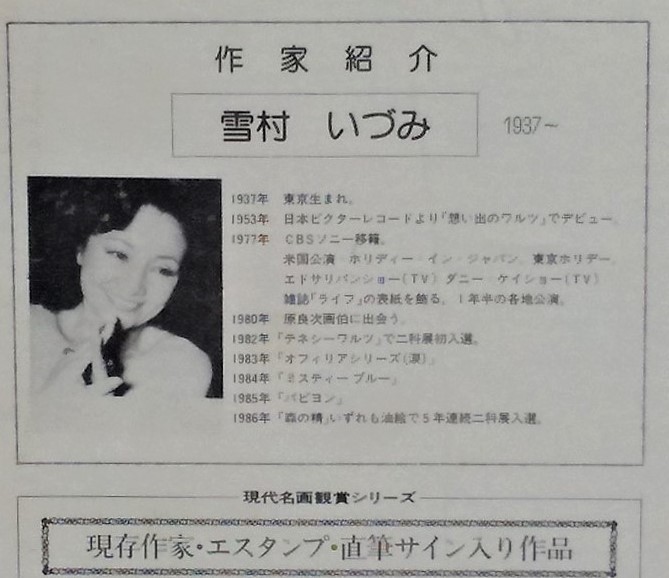 作家紹介
雪村 いづみ 1937~
1937年 東京生まれ。
1953年 日本ビクターレコードより「想い出のワルツ」でデビュー。
1977年 CBSソニー移籍。
米国公演 ホリディー・イン・ジャパン、東京ホリデー、
エドサリバンショー(TV) ダニー・ケイショー(TV)
雑誌「ライフ」の表紙を飾る。1年半の各地公演。
1980年 原良次画伯に出会う。
1982年 「テネシーワルツ」で二科展初入選。
1983年 「オフィリアシリーズ(涙)」
1984年 「ミスティーブルー」
1985年 「パピヨン」
1986年 「森の精」いずれも油絵で5年連続二科展入選。
現代名画観賞シリーズ
現存作家・エスタンプ・直筆サイン入り作品